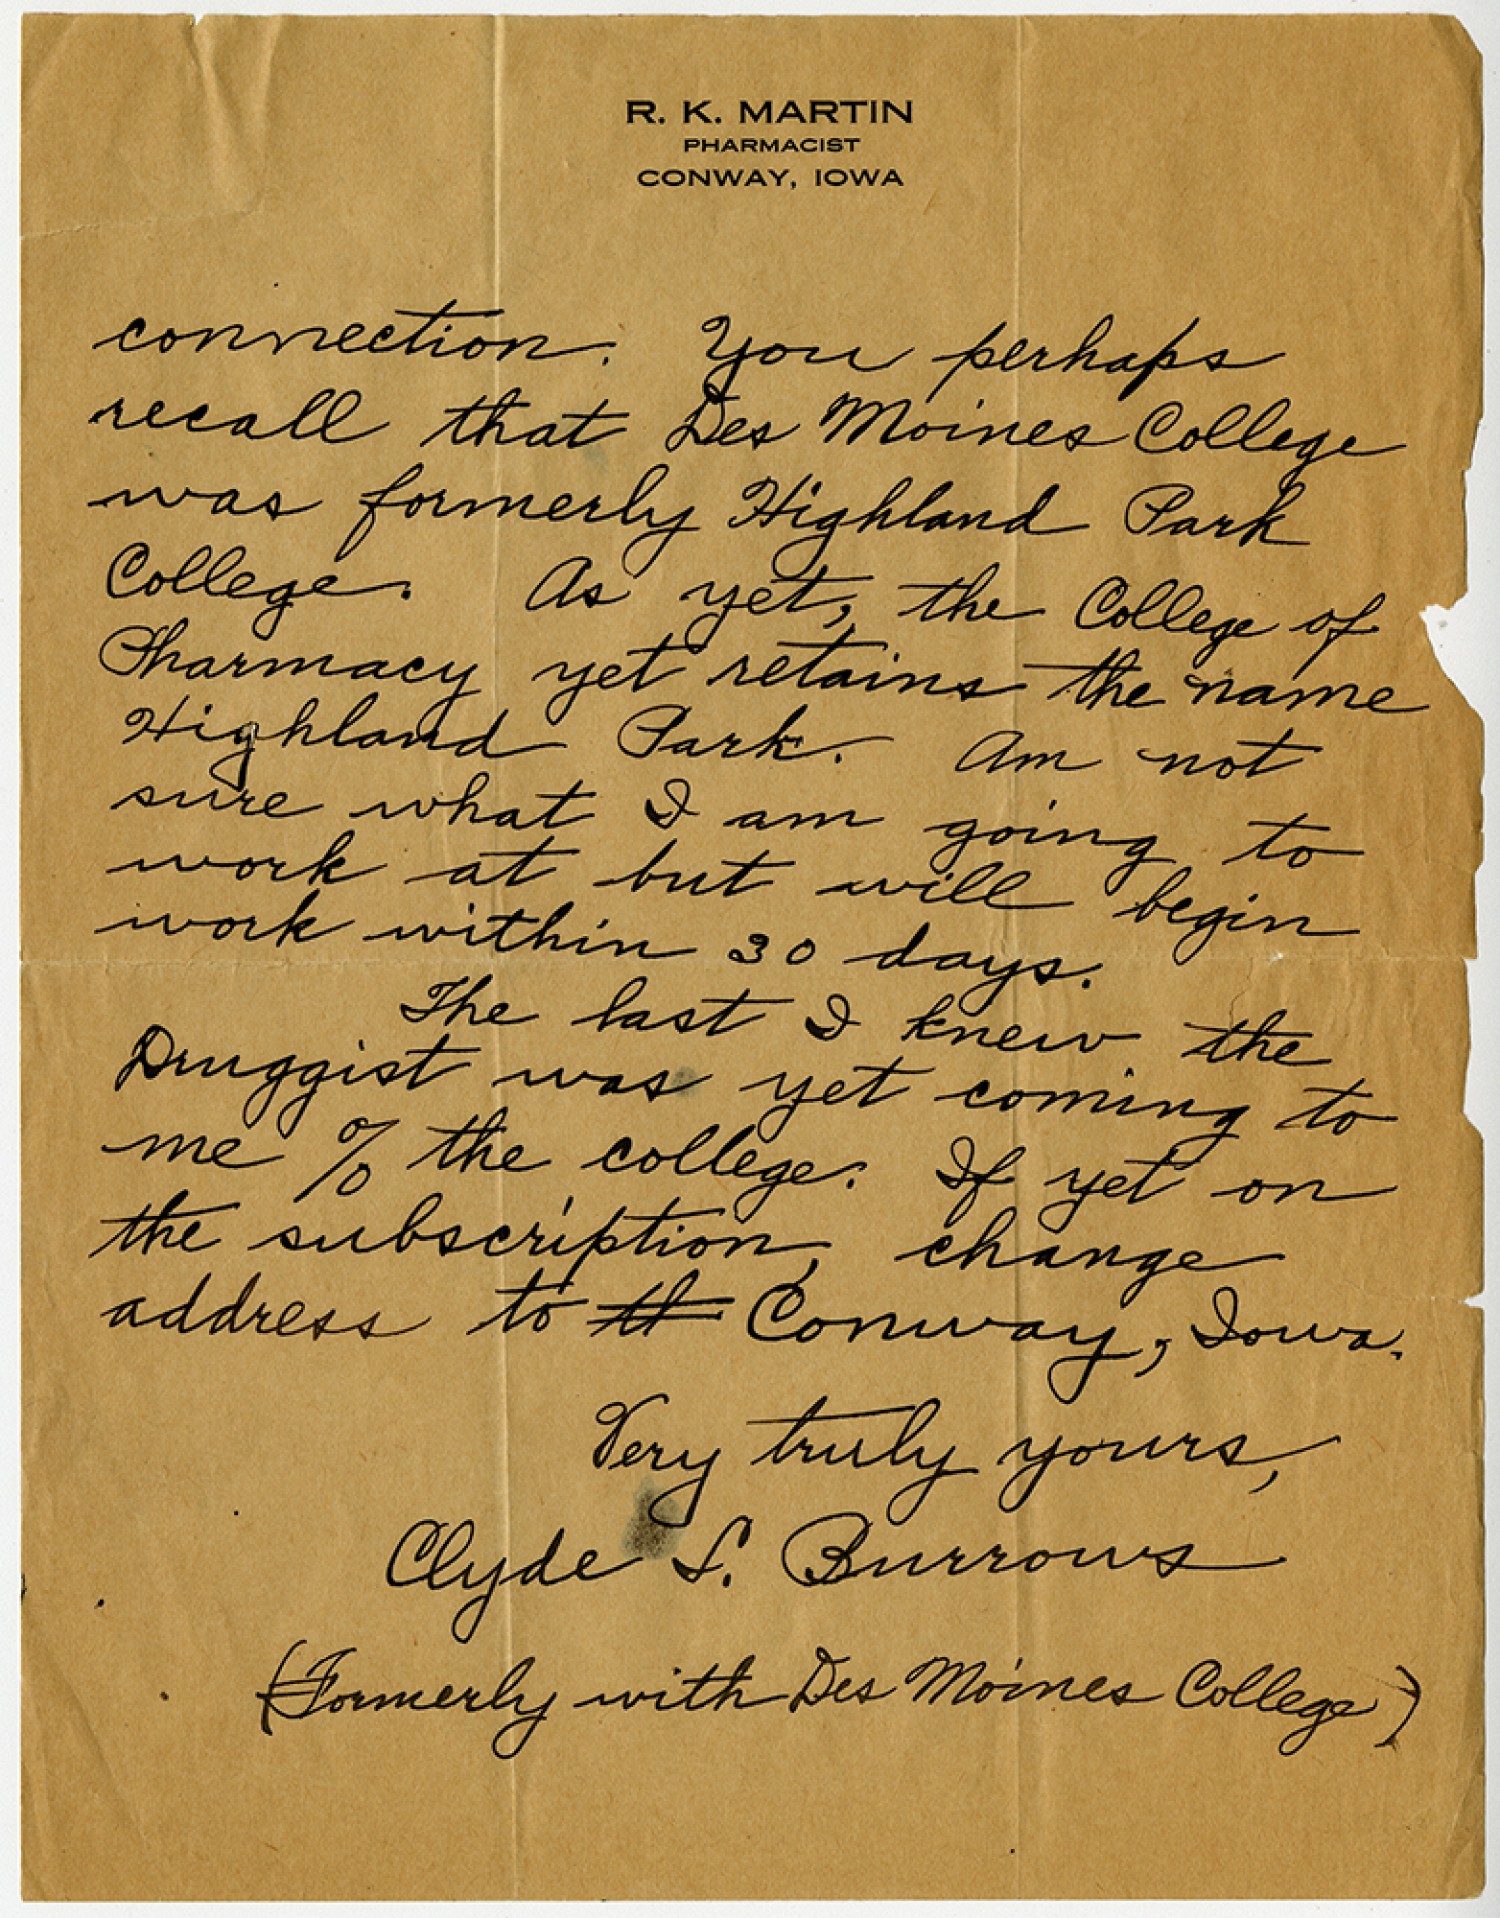 R. K. MARTIN
PHARMACIST
CONWAY, IOWA
connection. You perhaps
recall that Des Moines College
was formerly Highland Park
College. As yet, the College of
Pharmacy yet retains the name
Highland Park. Am not
sure what I am going to
work at but will begin
work within 30 days.
The last I knew the
Druggist was yet coming to
me % the college. If yet on
the subscription, change
address to th Conway, Iowa.
Very truly yours,
Clyde S. Burrows
(Formerly with Des Moines College)